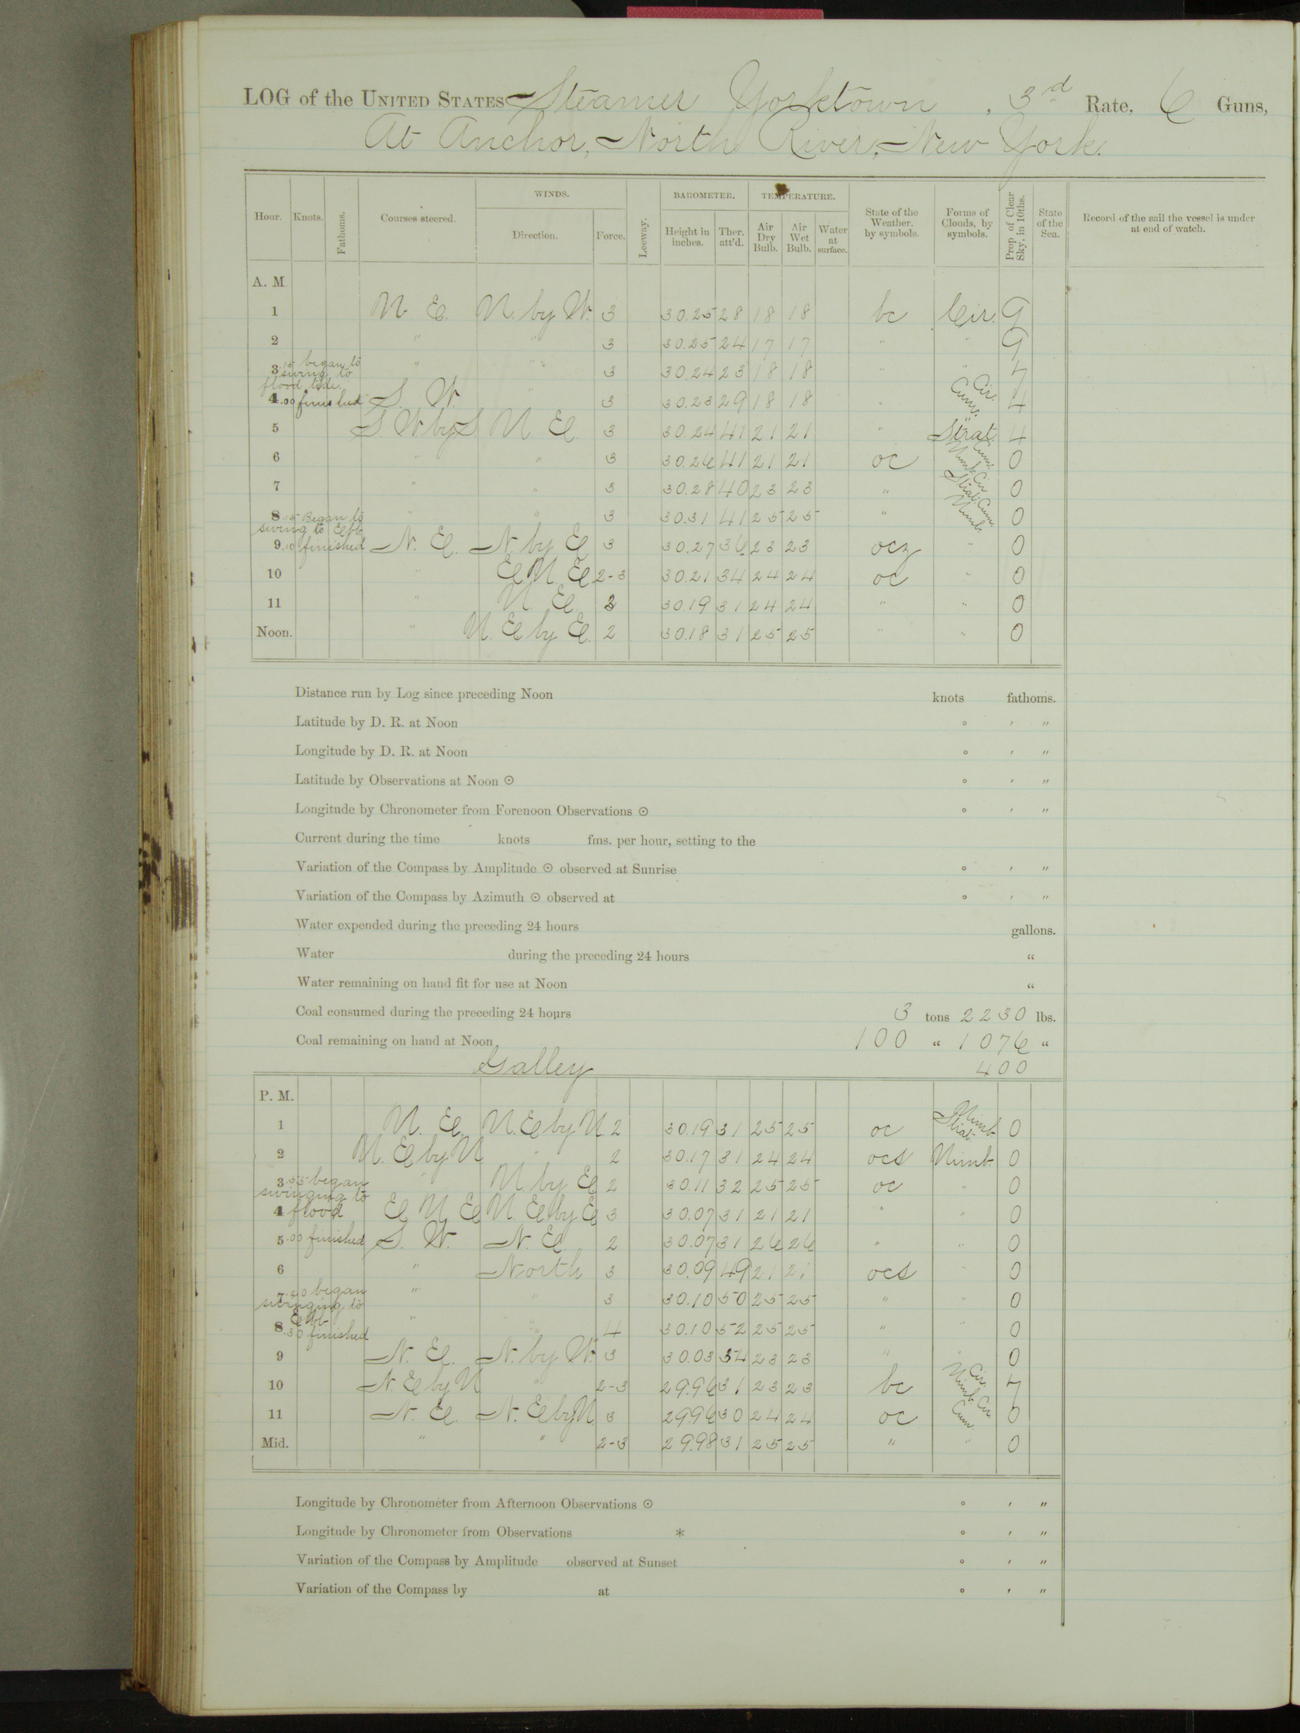 LOG of the UNITED STATES Steamer Yorktown, 3rd Rate, 6 Guns,
At Anchor, North River, New York.
Hour. Knots. Fathoms. Courses steered. WINDS. Direction. Force. Leeway. BAROMETER. Height in inches. Ther. att'd. TEMPERATURE. Air Dry Bulb. Air Wet Bulb. Water at surface. State of the Weather. by symbols. Forms of Clouds, by symbols. Prop of Clear Sky, in 10ths. State of the Sea. Record of the sail the vessel is under at end of watch.
A. M
1 N. E. N. by W. 3 30.25 28 18 18 bc Cir. 9
2 " " 3 30.25 24 17 17 " " 9
3 .15 began to swing to flood tide. " " 3 30.24 23 18 18 " " 7
4 .00 finished S. W. " 3 30.23 29 18 18 " Cir. Cum. 4
5 S. W. by S N E 3 30.24 41 21 21 " Strat. 4
6 " " 3 30.26 41 21 21 oc Cum. Nimb. 0
7 " " 3 30.28 40 23 23 " Cir. Strat. 0
8 .15 Began to swing to Ebb " " 3 30.31 41 25 25 " Cum. Nimb. 0
9 .10 finished N. E. N. by E 3 30.27 36 23 23 ocz " 0
10 " E N E 2-3 30.21 34 24 24 oc " 0
11 " N E 3 30.19 31 24 24 " " 0
Noon. " N. E by E. 2 30.18 31 25 25 " " 0
Distance run by Log since preceding Noon knots fathoms.
Latitude by D. R. at Noon ° ′ ″
Longitude by D. R. at Noon ° ′ ″
Latitude by Observations at Noon ⊙ ° ′ ″
Longitude by Chronometer from Forenoon Observations ⊙ ° ′ ″
Current during the time knots fms. per hour, setting to the
Variation of the Compass by Amplitude ⊙ observed at Sunrise ° ′ ″
Variation of the Compass by Azimuth ⊙ observed at ° ′ ″
Water expended during the preceding 24 hours gallons.
Water during the preceding 24 hours "
Water remaining on hand fit for use at Noon "
Coal consumed during the preceding 24 hours 3 tons 2230 lbs.
Coal remaining on hand at Noon 100 " 1076 "
Galley 400
P. M.
1 N. E N. E by N 2 30.19 31 25 25 oc Nimb. Strat. 0
2 N. E by N " 2 30.17 31 24 24 ocs Nimb. 0
3 .35 began swinging to flood " N by E 2 30.11 32 25 25 oc " 0
4 E N E N. E. by E 3 30.07 31 21 21 " " 0
5 .00 finished S. W. N. E 2 30.07 31 26 26 " " 0
6 " North 3 30.09 49 21 21 ocs " 0
7 .50 began swinging to Ebb " " 3 30.10 50 25 25 " " 0
8 .30 finished " " 4 30.10 52 25 25 " " 0
9 N. E. N. by W. 3 30.03 34 23 23 " " 0
10 N. E by N " 2-3 29.96 31 23 23 bc Cir. Nimb. 7
11 N. E. N. E by N 3 29.96 30 24 24 oc Cir. Cum. 0
Mid. " " 2-3 29.98 31 25 25 " " 0
Longitude by Chronometer from Afternoon Observations ⊙ ° ′ ″
Longitude by Chronometer from Observations * ° ′ ″
Variation of the Compass by Amplitude observed at Sunset ° ′ ″
Variation of the Compass by at ° ′ ″